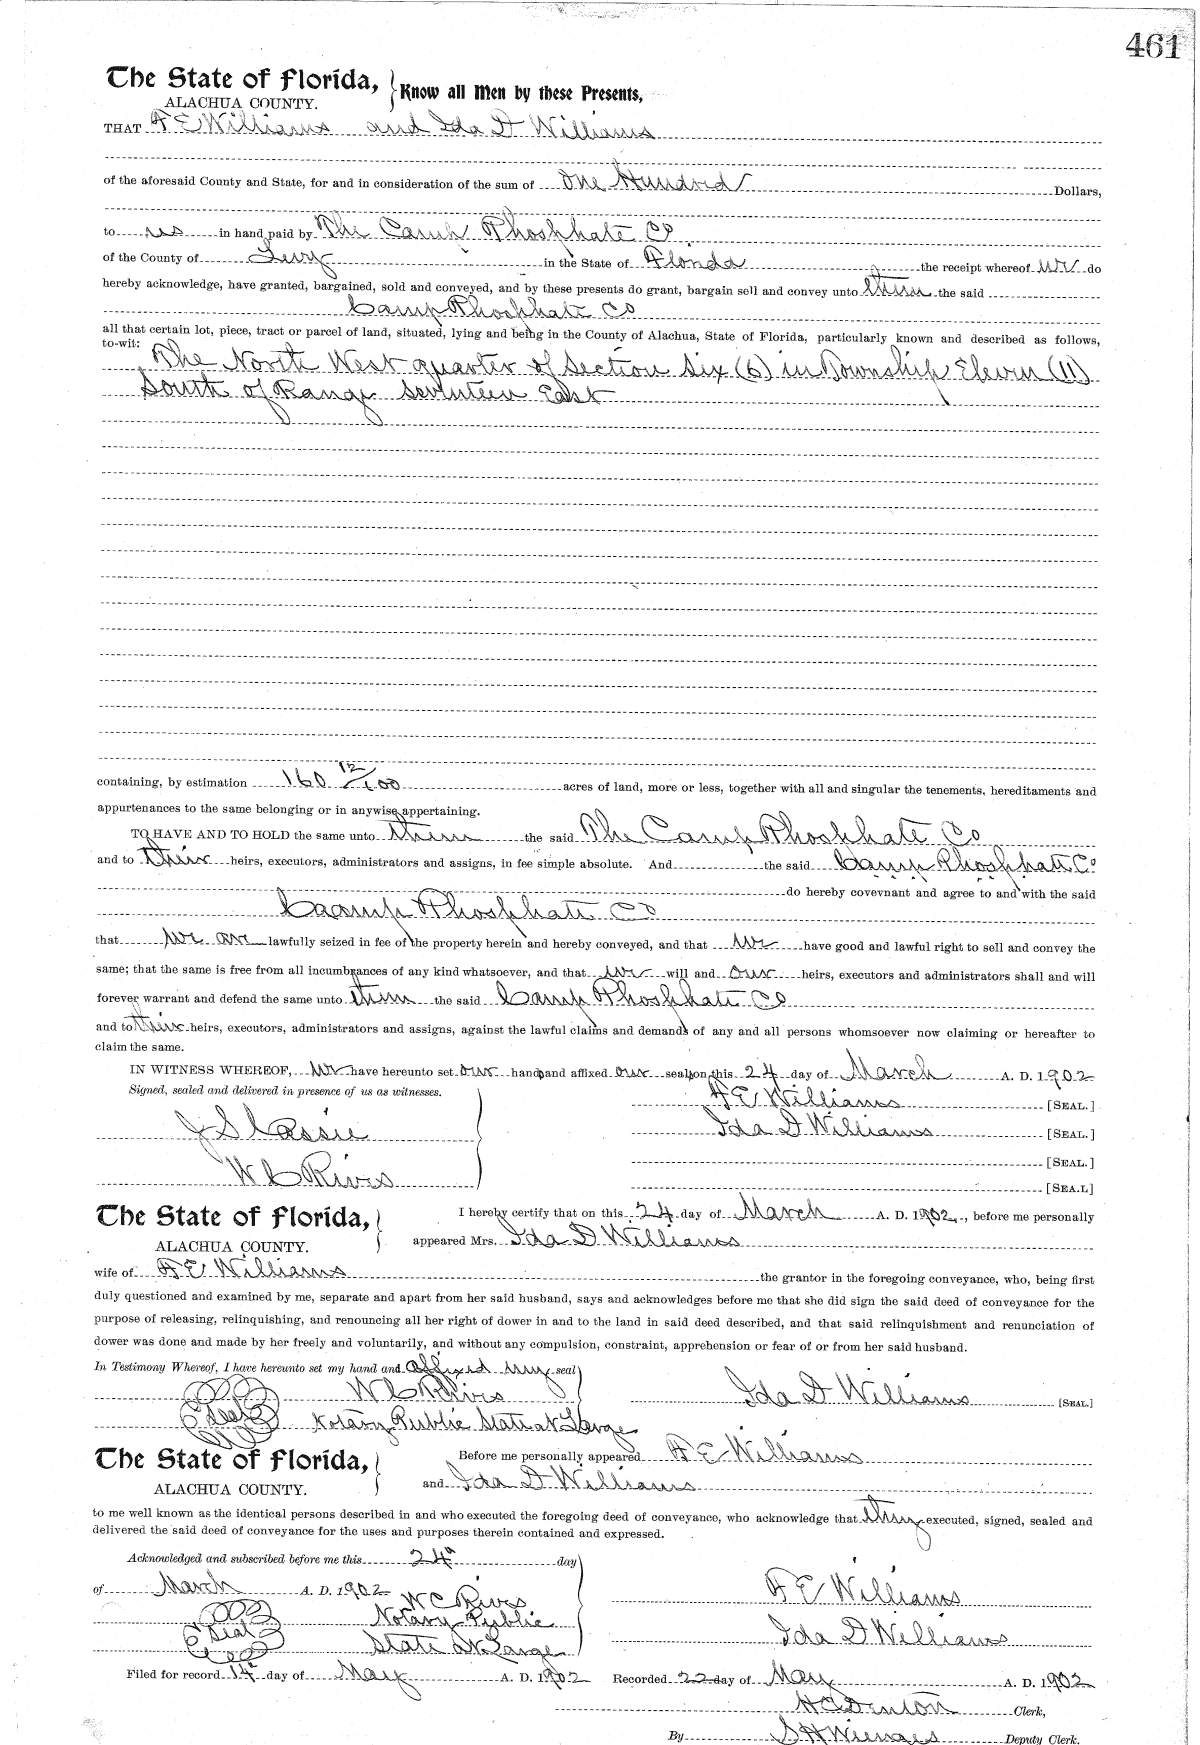 461
The State of Florida, } Know all Men by these Presents,
ALACHUA COUNTY.
THAT F E Williams and Ida D Williams
of the aforesaid County and State, for and in consideration of the sum of One Hundred Dollars,
to us in hand paid by The Camp Phosphate Co
of the County of Levy in the State of Florida the receipt whereof we do
hereby acknowledge, have granted, bargained, sold and conveyed, and by these presents do grant, bargain sell and convey unto them the said
Camp Phosphate Co
all that certain lot, piece, tract or parcel of land, situated, lying and being in the County of Alachua, State of Florida, particularly known and described as follows,
to-wit: The North West quarter of Section Six (6) in Township Eleven (11)
South of Range Seventeen East
containing, by estimation 160 12/100 acres of land, more or less, together with all and singular the tenements, hereditaments and
appurtenances to the same belonging or in anywise appertaining.
TO HAVE AND TO HOLD the same unto them the said The Camp Phosphate Co
and to their heirs, executors, administrators and assigns, in fee simple absolute. And the said Camp Phosphate Co
do hereby covevnant and agree to and with the said
Caamp Phosphate Co
that we are lawfully seized in fee of the property herein and hereby conveyed, and that we have good and lawful right to sell and convey the
same; that the same is free from all incumbrances of any kind whatsoever, and that we will and our heirs, executors and administrators shall and will
forever warrant and defend the same unto them the said Camp Phosphate Co
and to their heirs, executors, administrators and assigns, against the lawful claims and demands of any and all persons whomsoever now claiming or hereafter to
claim the same.
IN WITNESS WHEREOF, we have hereunto set our hands and affixed our seals on this 24 day of March A. D. 1902
Signed, sealed and delivered in presence of us as witnesses. F E Williams [SEAL.]
J S Cassie Ida D Williams [SEAL.]
[SEAL.]
W C Rivis [SEA.L]
The State of Florida, } I hereby certify that on this 24 day of March A. D. 1902, before me personally
ALACHUA COUNTY. appeared Mrs. Ida D Williams
wife of F E Williams the grantor in the foregoing conveyance, who, being first
duly questioned and examined by me, separate and apart from her said husband, says and acknowledges before me that she did sign the said deed of conveyance for the
purpose of releasing, relinquishing, and renouncing all her right of dower in and to the land in said deed described, and that said relinquishment and renunciation of
dower was done and made by her freely and voluntarily, and without any compulsion, constraint, apprehension or fear of or from her said husband.
In Testimony Whereof, I have hereunto set my hand and affixed my seal
W C Rivis Ida D Williams [SEAL.]
Seal Notary Public State at Large
The State of Florida, } Before me personally appeared F E Williams
ALACHUA COUNTY. and Ida D Williams
to me well known as the identical persons described in and who executed the foregoing deed of conveyance, who acknowledge that they executed, signed, sealed and
delivered the said deed of conveyance for the uses and purposes therein contained and expressed.
Acknowledged and subscribed before me this 24" day
of March A. D. 1902 F E Williams
W C Rivis
Notary Public
Seal State at Large Ida D Williams
Filed for record 14" day of May A. D. 1902 Recorded 22 day of May A. D. 1902
H C Denton Clerk,
By S H Wienges Deputy Clerk.